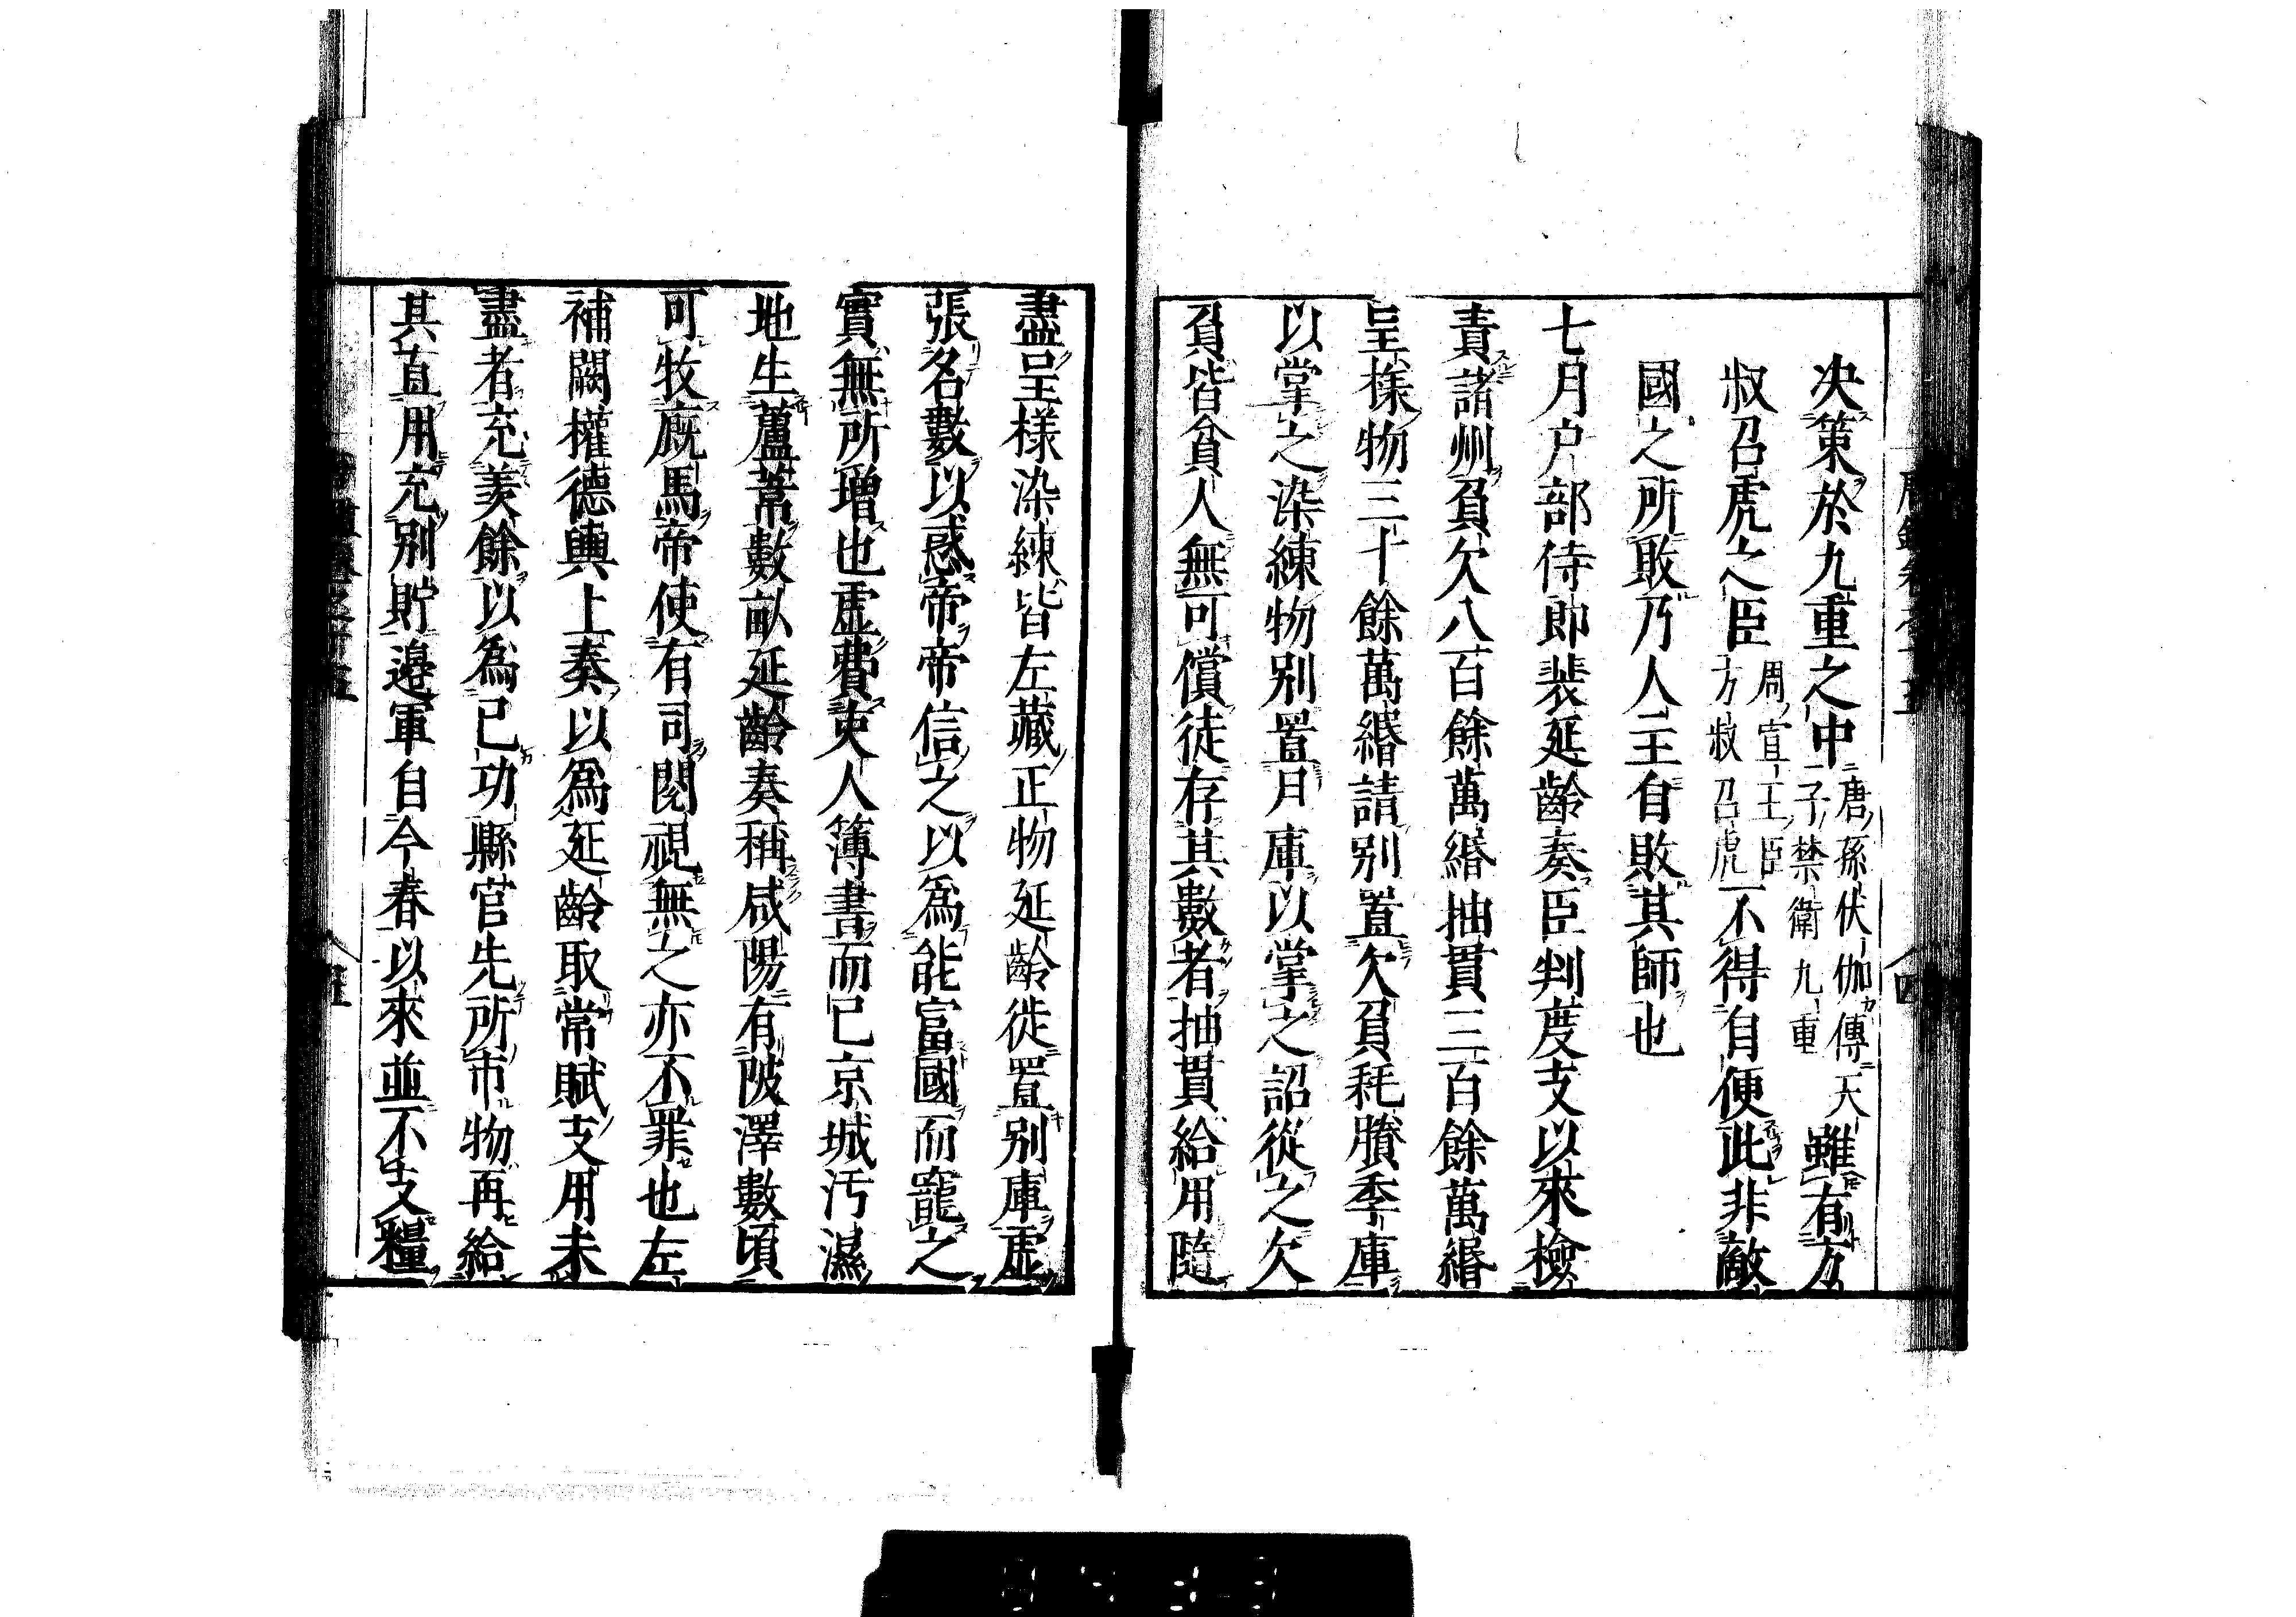 决策於九重之中唐孫伏伽傳天子禁衛九重雖有方
叔召虎之臣周宣王臣方叔召虎不得自便此非敵
國之所敗乃人主自敗其師也
七月户部侍郎裴延齡奏臣判度支以來檢
責諸州負欠八百餘萬緡抽貫三百餘萬緡
呈㨾物三十餘萬緡請别置欠負耗賸季庫
以掌之染練物别置月庫以掌之詔從之欠
負皆貧人無可償徒存其數者抽貫給用隨
盡呈樣染練皆左藏正物延齡徙置别庫虛
張名數以惑帝帝信之以爲能富國而寵之
實無所增也虛費吏人簿書而已京城汚濕
地生蘆葦數畝延齡奏稱咸陽有陂澤數頃
可牧廐馬帝使有司閱視無之亦不罪也左
補闕權德輿上奏以爲延齡取常賦支用未
盡者充羡餘以爲已功縣官先所市物再給
其直用充别貯邉軍自今春以來並不支糧